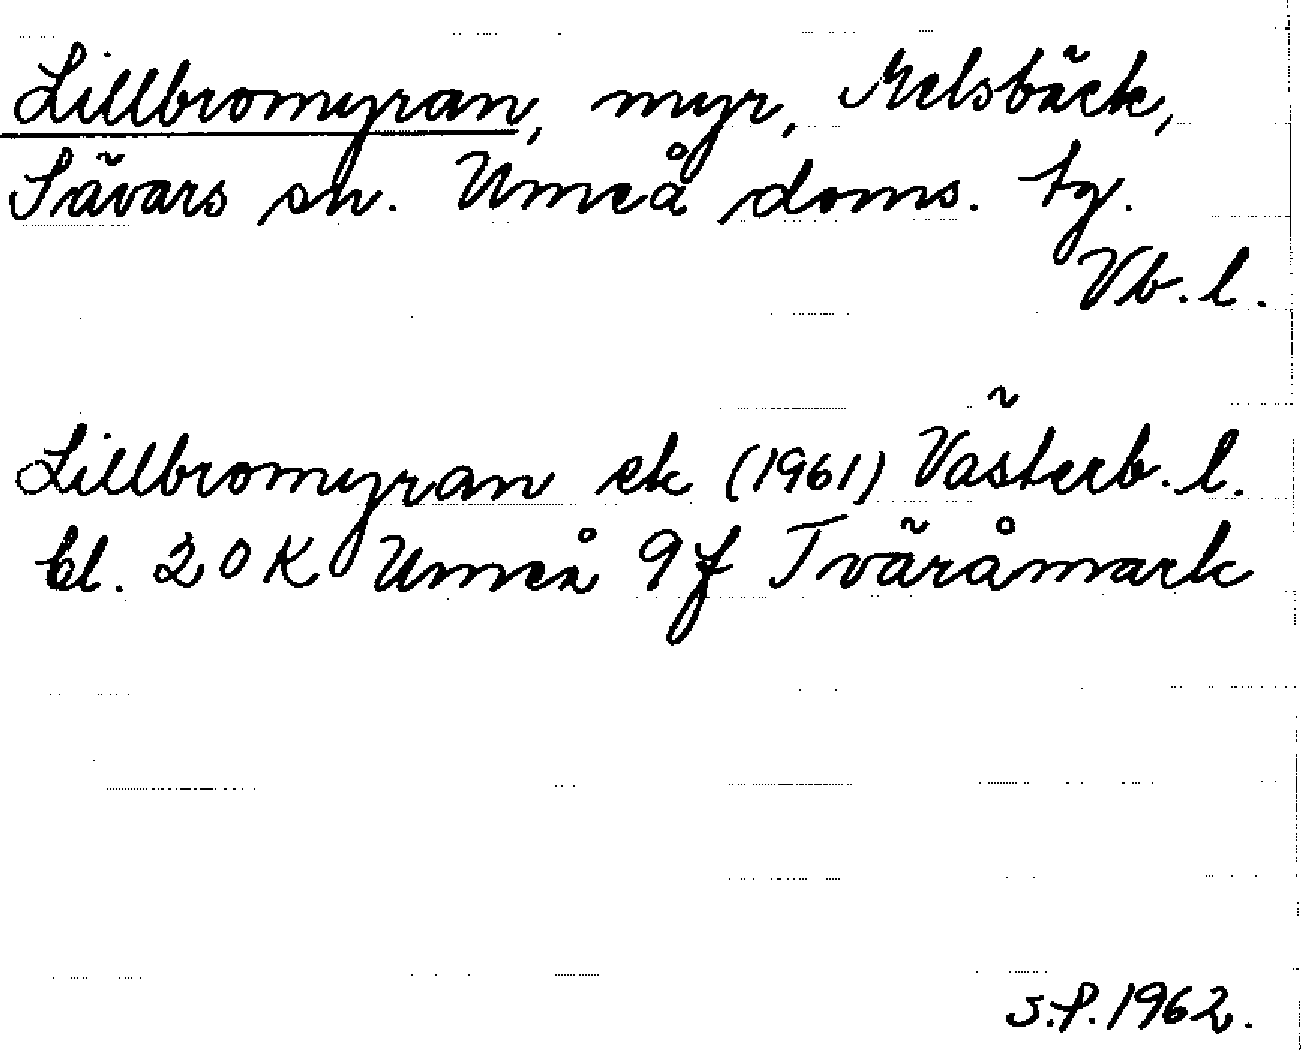 Lillbromyran, myr, Melsbäck,
Sävars sn. Umeå doms. tg.
Vb. l.
Lillbromyran ek (1961) Västerb. l.
bl. 20 K Umeå 9f Tväråmark
S.P. 1962.